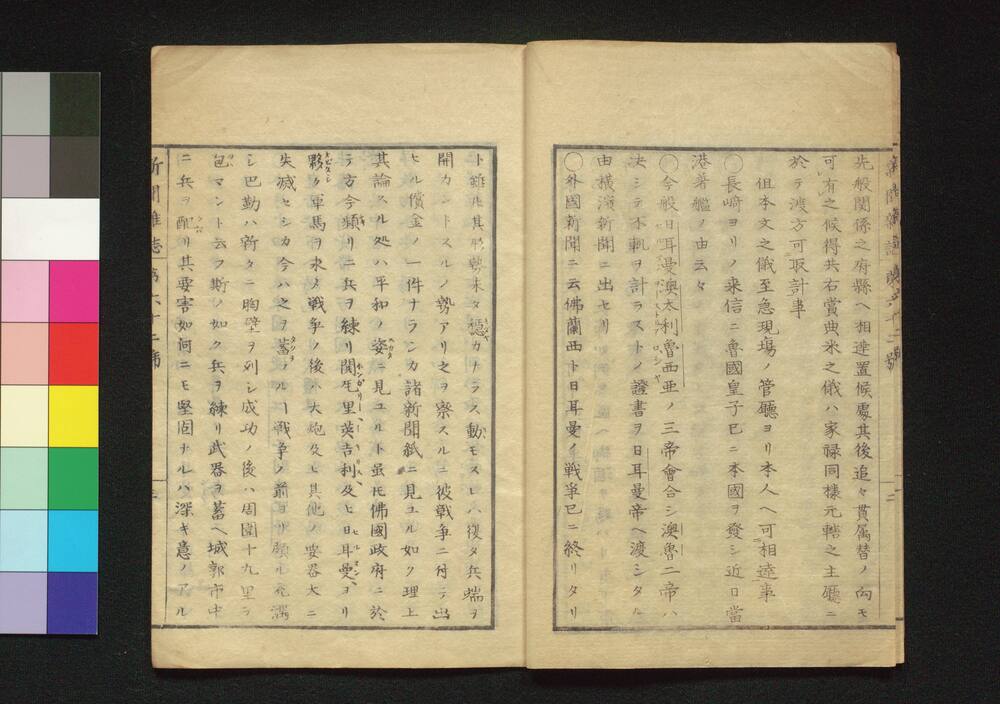 先般関係之府縣ヘ相達置候處其後追々貫属替ノ向モ
可有之候得共右賞典米之儀ハ家禄同様元轄之主廳ニ
於テ渡方可取計事
但本文之儀至急現場ノ管廳ヨリ本人ヘ可相達事
○長崎ヨリノ来信ニ魯國皇子已ニ本國ヲ發シ近日當
港著艦ノ由云々
○今般日耳曼澳太利魯西亜ノ三帝會合シ澳魯二帝ハ
決シテ不軌ヲ計ラストノ證書ヲ日耳曼帝ヘ渡シタル
由横濱新聞ニ出セリ
○外國新聞ニ云佛蘭西ト日耳曼ノ戦争已ニ終リタリ
ト雖ル其形勢未タ穏カナラス動モスレハ復タ兵端ヲ
開カントスルノ勢アリ之ヲ察スルニ彼戦争ニ付テ出
セル償金ノ一件ナランカ諸新聞紙ニ見ユル如ク理上
其論スル処ハ平和ノ姿ニ見ユルト虽𪜈佛國政府ニ於
テ方今頻リニ兵ヲ練リ閧牙里英吉利及ヒ日耳曼ヨリ
夥ク軍馬ヲ求メ戦争ノ後ハ大炮及ヒ其他ノ要器大ニ
失滅セシカ今ハ之ヲ蓄フルヿ戦争ノ前ヨリ頗ル充満
シ巴勤ハ新タニ胸壁ヲ列シ成功ノ後ハ周圍十九里ヲ
包マント云フ斯ノ如ク兵ヲ練リ武器ヲ蓄ヘ城郭市中
ニ兵ヲ配リ其要害如何ニモ堅固ナルハ深キ意ノアル
新聞雜誌 第六十二號